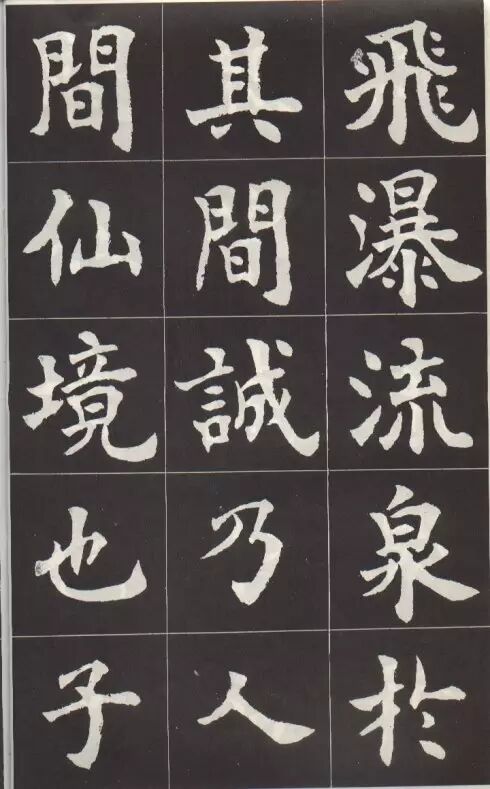 飛瀑流泉於
其間誠乃人
間仙境也子